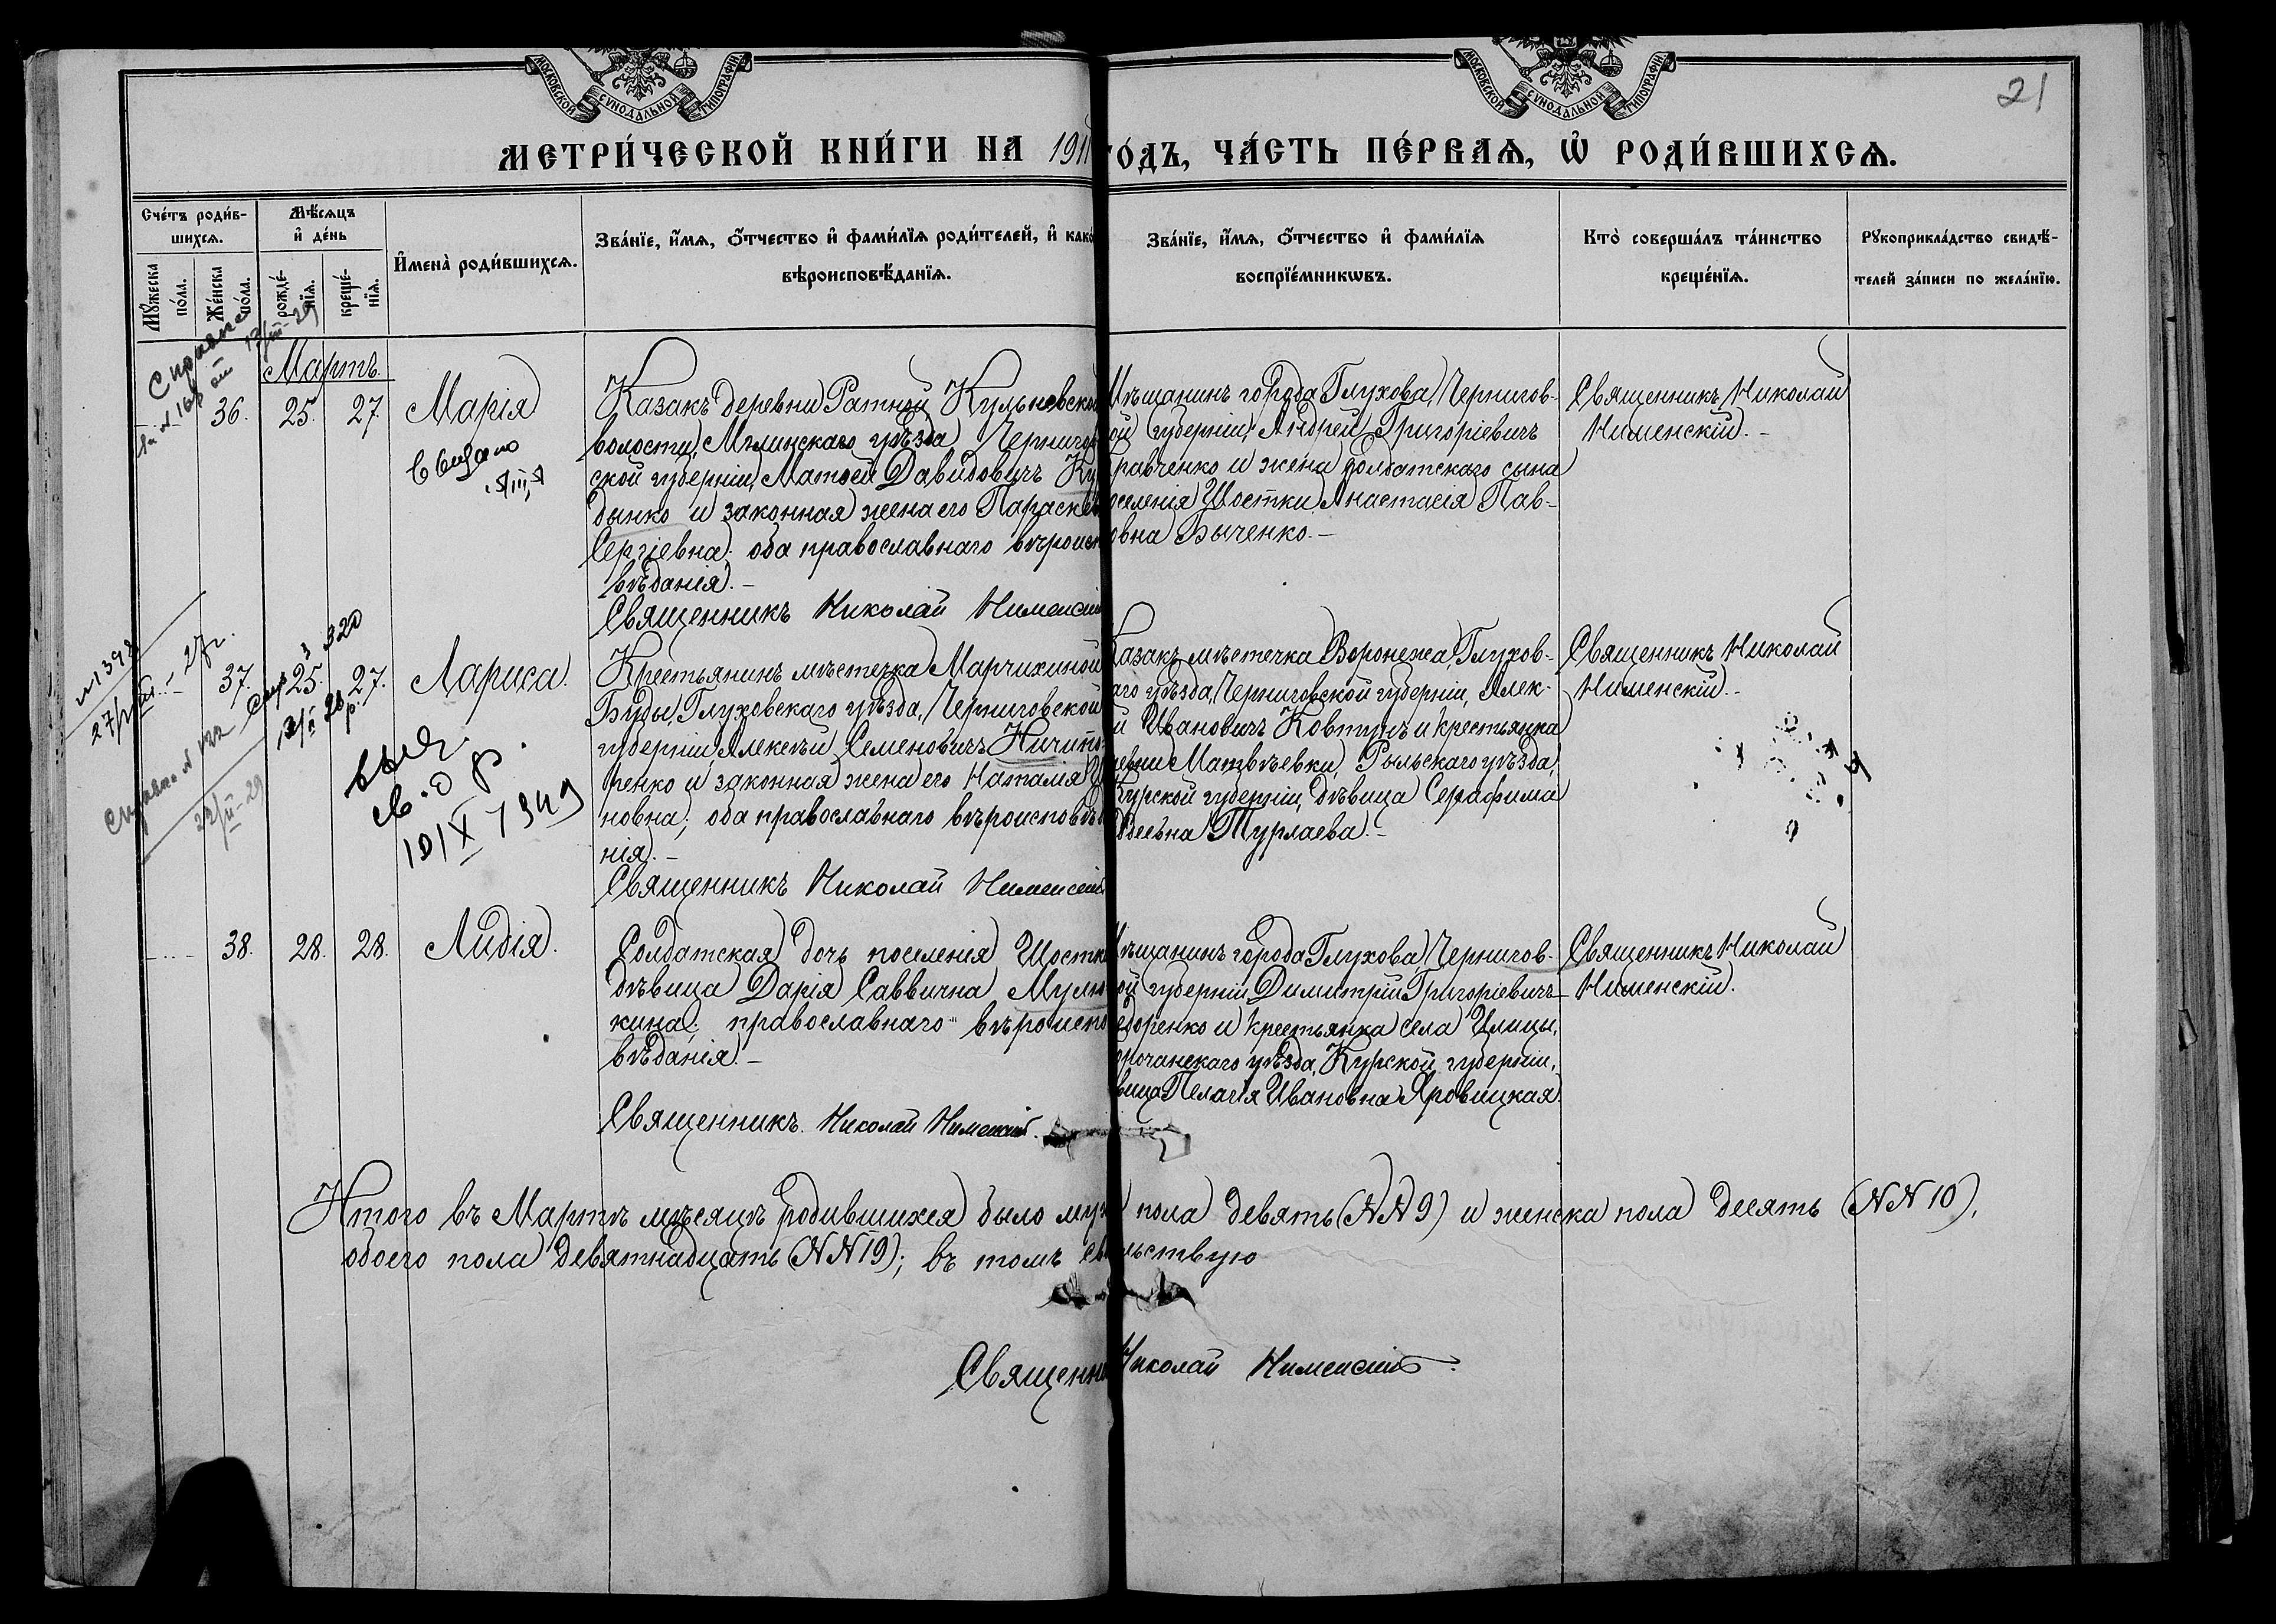 МОСКОВСКОЙ СѴНОДАЛЬНОЙ ТИПОГРАФІИ
МОСКОВСКОЙ СѴНОДАЛЬНОЙ ТИПОГРАФІИ
21
МЕТРИ́ЧЕСКОЙ КНИ́ГИ НА 191
ГО́ДЪ, ЧА́СТЬ ПЕ́РВАѦ, Ѡ҆ РОДИ́ВШИХСѦ.
Сче́тъ роди́в-
шихсѧ.
Мꙋ́жеска
по́ла.
Же́нска
по́ла.
Мѣ́сѧцъ
и҆ де́нь
рожде́-
нїѧ.
креще́-
нїѧ.
И҆мена̀ роди́вшихсѧ.
Зва́нїе, и҆́мѧ, ѻ҆́тчество и҆ фами́лїѧ роди́телей, и҆ како
вѣроисповѣ́данїѧ.
Зва́нїе, и҆́мѧ, ѻ҆́тчество и҆ фами́лїѧ
воспрїе́мникѡвъ.
Кто̀ соверша́лъ та́инство
креще́нїѧ.
Рꙋкоприкла́дство свидѣ́-
телей за́писи по жела́нїю.
Мартъ.
36. 25. 27. Марія
Казакъ деревни Ратной Кульневской
волости, Мглинскаго уѣзда, Чернигов
ской губерніи, Матѳей Давидовичъ Ку
дынко и законная жена его Параскев
Сергіевна; оба православнаго вѣроиспо
вѣданія. –
Священникъ Николай Нименскій
Мѣщанинъ города Глухова, Чернигов-
ой губерніи, Андрей Григоріевичъ
Кравченко и жена солдатскаго сына
оселенія Шостки Анастасія Пав-
овна Быченко. –
Священникъ Николай
Нименскій. –
37. 25. 27. Лариса.
Крестьянинъ мѣстечка Марчихиной
Буды, Глуховскаго уѣзда, Черниговской
губерніи, Алексѣй Семеновичъ Ничипо-
ренко и законная жена его Наталія
новна; оба православнаго вѣроисповѣда
нія. –
Священникъ Николай Нименскій
Казакъ мѣстечка Воронежа, Глухов-
аго уѣзда, Черниговской губерніи, Алек-
й Ивановичъ Ковтунъ и крестьянка
ревни Матвѣевки, Рыльскаго уѣзда,
Курской губерніи, дѣвица Серафима
Турлаева. –
Священникъ Николай
Нименскій. –
выд.
св. о р.
10/X 1949
38. 28. 28. Лидія.
Солдатская дочь поселенія Шостк
дѣвица Дарія Саввична Мулю
кина; православнаго вѣроиспо
вѣданія. –
Священникъ Николай Нименскій.
Мѣщанинъ города Глухова, Чернигов-
ой губерніи, Димитрій Григоріевичъ
едоренко и крестьянка села Илицы,
орочанскаго уѣзда, Курской губерніи,
вица Пелагія Ивановна Яровицкая.
Священникъ Николай
Нименскій.
Итого въ Мартѣ мѣсяцѣ родившихся было муж пола девять (NN 9) и женска пола десять (NN 10),
обоего пола девятнадцать (NN 19); въ томъ свльствую
Священни Николай Нименскій.